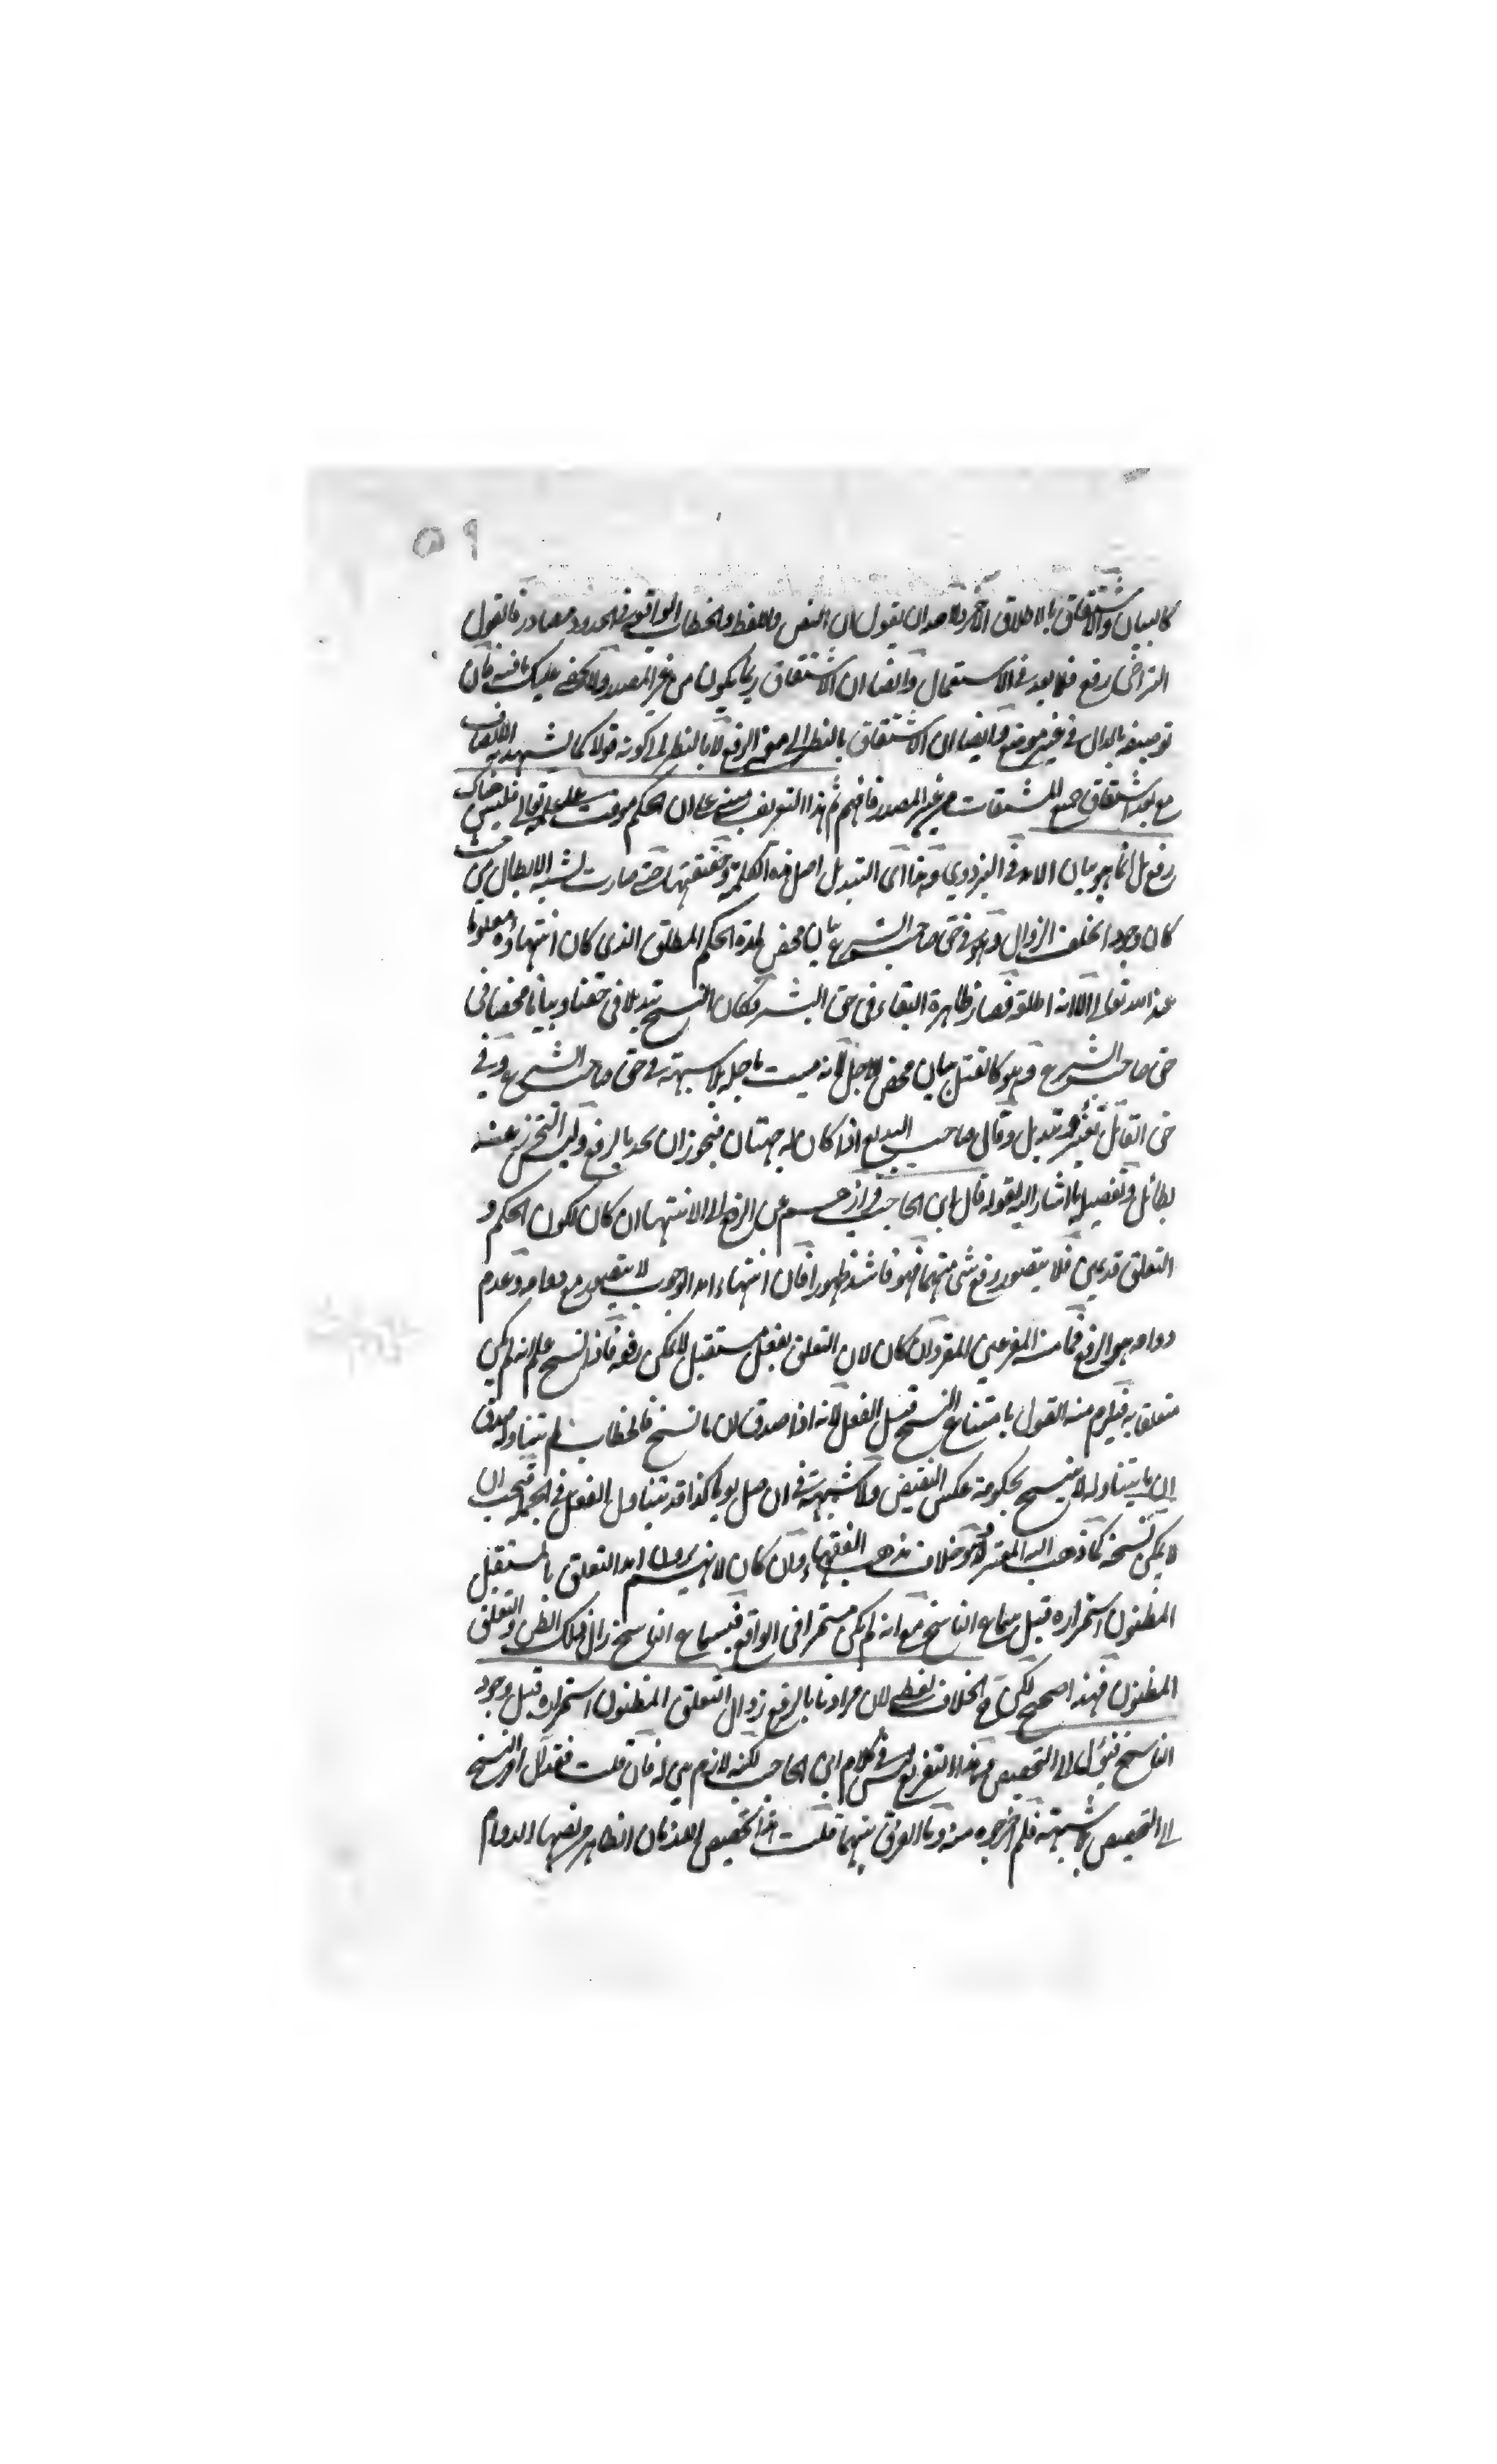 ٥٩
كالبيان والاشتقاق بالاطلاق الآخر ولاحد ان يقول ان النص واللفظ والخطاب الواقع في الحدود مصادر فالقول
التراخي رفع فلا بعد في الاستعمال وايضا ان الاشتقاق ربما يكون من غير المصدر ولا يخفى عليك ما فيه فان
توصيفه بالدال في غير موضع وايضا ان الاشتقاق بالنظر الى معنى الرفع لا بالنظر الى كونه قولا كما يشهد به الانصاف
مع بعد اشتقاق جميع المشتقات من غير المصدر فافهم ثم هذا التعريف يبتنى على ان الحكم موقت في علمه تعالى فليس هناك
رفع بل انما هو بيان الامد في البزدوي وهذا اى التبديل اصل هذه الكلمة وحقيقتها حتى صارت تشبه الابطال من حيث
كان وجود الخلف الزوال وهو في حق صاحب الشرع بيان محض لمدة الحكم المطلق الذى كان انتهاؤه معلوما
عند الله تعالى الا انه اطلقه فصار ظاهره البقاء في حق البشر فكان النسخ تبديلا في حقنا وبيانا محضا في
حق صاحب الشرع وهو كالقتل بيان محض للاجل لانه ميت باجله بلا شبهة في حق صاحب الشرع وفي
حق القاتل تغيير وتبديل وقال صاحب البديع اذا كان له جهتان فيجوز ان يحد بالرفع وليس التحرز عنه
بطائل وتفصيله ما اشار اليه بقوله قال ابن الحاجب فرارهم عن الرفع الى الانتهاء ان كان لكون الحكم و
التعلق قديمين فلا يتصور رفع شئ منهما فهو فاسد ظهورا فان انتهاء امد الوجوب لا يتصور مع دوامه وعدم
دوامه هو الرفع فما منه المفر عين المقر وان كان لان التعلق بفعل مستقبل لا يمكن رفعه فاذا نسخ علم انه لم يكن
متعلقا به فيلزم منه القول بامتناع النسخ قبل الفعل لانه اذا صدق ان ما نسخ فالخطاب لم يتناوله صدق
ان ما يتناوله لا ينسخ بحكومة عكس النقيض ولا شبهة في ان صل يوما كذا قد تناول الفعل في الجملة فيجب ان
لا يمكن نسخه كما ذهب اليه المعتزلة وهو خلاف مذهب الفقهاء وان كان لانهم يرون امد التعلق بالمستقبل
المظنون استمراره قبل سماع الناسخ مع انه لم يكن مستمرا في الواقع فبسماع الناسخ زال ذلك الظن والتعلق
المظنون فهذا صحيح لكن ح الخلاف لفظي لان مرادنا بالرفع زوال التعلق المظنون استمراره قبل وجود
الناسخ فيؤل الى التخصيص وهذا التفريع ليس في كلام ابن الحاجب لكنه لازم من له فان قلت فقد آل امر النسخ
الى التخصيص بلا شبهة فلم اخرجوه منه وما الفرق بينهما قلت هذا تخصيص الازمان الظاهر فيها الدوام